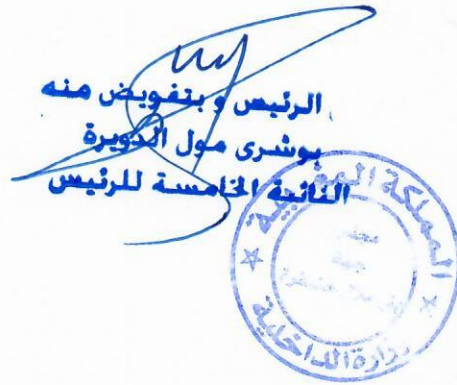 الرئيس و بتفويض منه
بوشرى مول الدويرة
النائبة الخامسة للرئيس
المملكة المغربية
وزارة الداخلية
مجلس
جهة